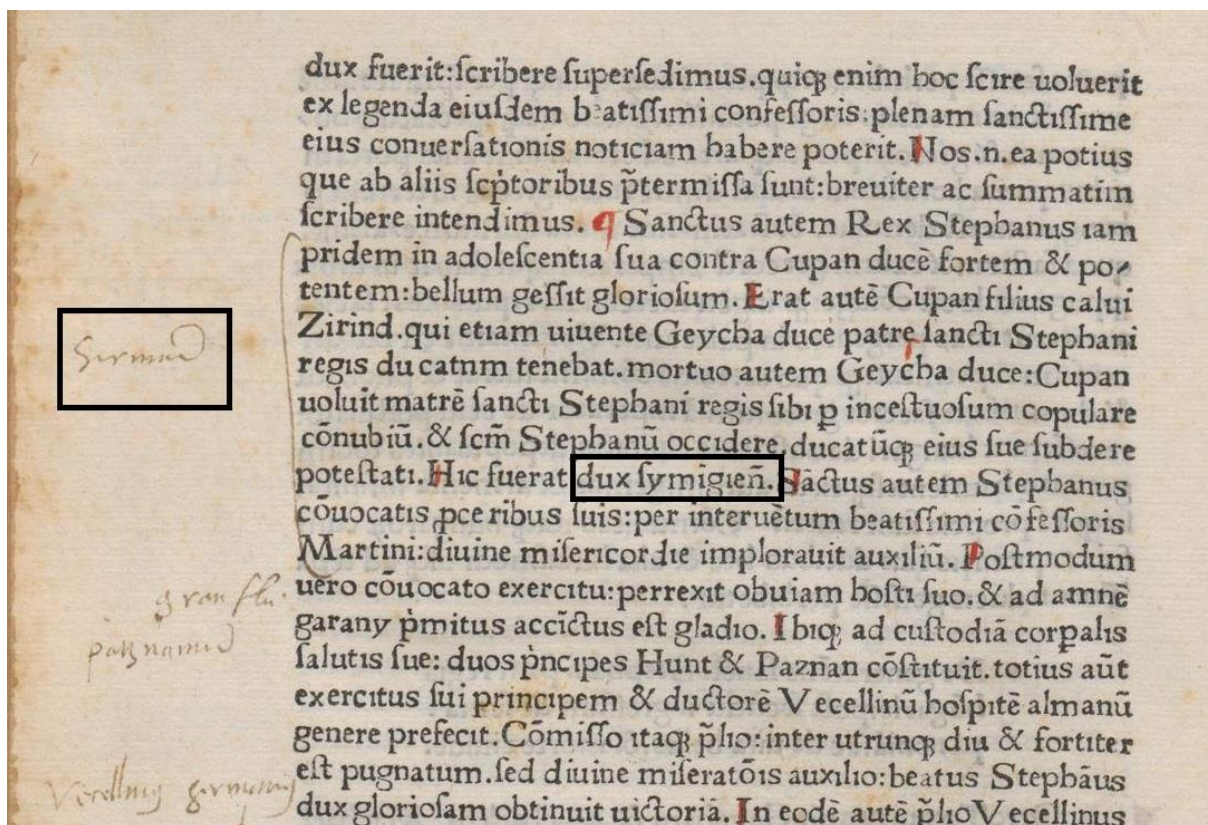 dux fuerit:ſcribere ſuperſedimus.quiqꝫ enim hoc ſcire uoluerit
ex legenda eiuſdem beatiſſimi confeſſoris:plenam ſanctiſſime
eius conuerſationis noticiam habere poterit.Nos.n.ea potius
que ab aliis ſcp̍toribus p̄termiſſa ſunt:breuiter ac ſummatim
ſcribere intendimus. ¶ Sanctus autem Rex Stephanus iam
pridem in adoleſcentia ſua contra Cupan ducē fortem & po⸗
tentem:bellum geſſit glorioſum.Erat autē Cupan filius calui
Zirind.qui etiam uiuente Geycha duce patre ſancti Stephani
regis ducatnm tenebat.mortuo autem Geycha duce:Cupan
uoluit matrē ſancti Stephani regis ſibi ꝑ inceſtuoſum copulare
cōnubiū.& ſcm̄ Stephanū occidere,ducatūqꝫ eius ſue ſubdere
poteſtati.Hic fuerat dux ſymigien̄.Sāctus autem Stephanus
cōuocatis ꝓceribus ſuis:per interuētum beatiſſimi cōfeſſoris
Martini:diuine miſericordie implorauit auxiliū.Poſtmodum
gran flu.
uero cōuocato exercitu:perrexit obuiam hoſti ſuo.& ad amnē
garany p̍mitus accīctus eſt gladio.Ibiqꝫ ad cuſtodiā corꝑalis
ſalutis ſue: duos p̍ncipes Hunt & Paznan cōſtituit.totius aūt
exercitus ſui principem & ductorē Vecellinū hoſpitē almanū
genere prefecit.Cōmiſſo itaqꝫ p̄lio:inter utrunqꝫ diu & fortiter
Vecellinus germanus
eſt pugnatum.ſed diuine miſeratōis auxilio:beatus Stephāus
dux glorioſam obtinuit uictoriā.In eodē autē p̄lio Vecellinus